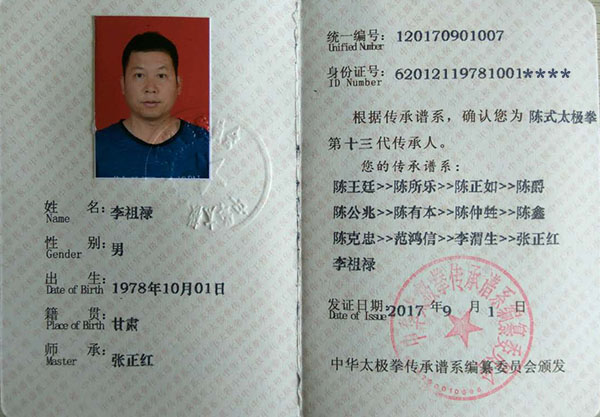 姓 名: 李祖禄
Name
性 别: 男
Gender
出 生: 1978年10月01日
Date of Birth
籍 贯: 甘肃
Place of Birth
师 承: 张正红
Master
统一编号: 120170901007
Unified Number
身份证号: 62012119781001****
ID Number
根据传承谱系，确认您为 陈式太极拳
第十三代传承人。
您的传承谱系:
陈王廷>>陈所乐>>陈正如>>陈爵
陈公兆>>陈有本>>陈仲甡>>陈鑫
陈克忠>>范鸿信>>李渭生>>张正红
李祖禄
发证日期: 2017 年9 月1 日
Date of Issue
中华太极拳传承谱系编纂委员会
中华太极拳传承谱系编纂委员会颁发